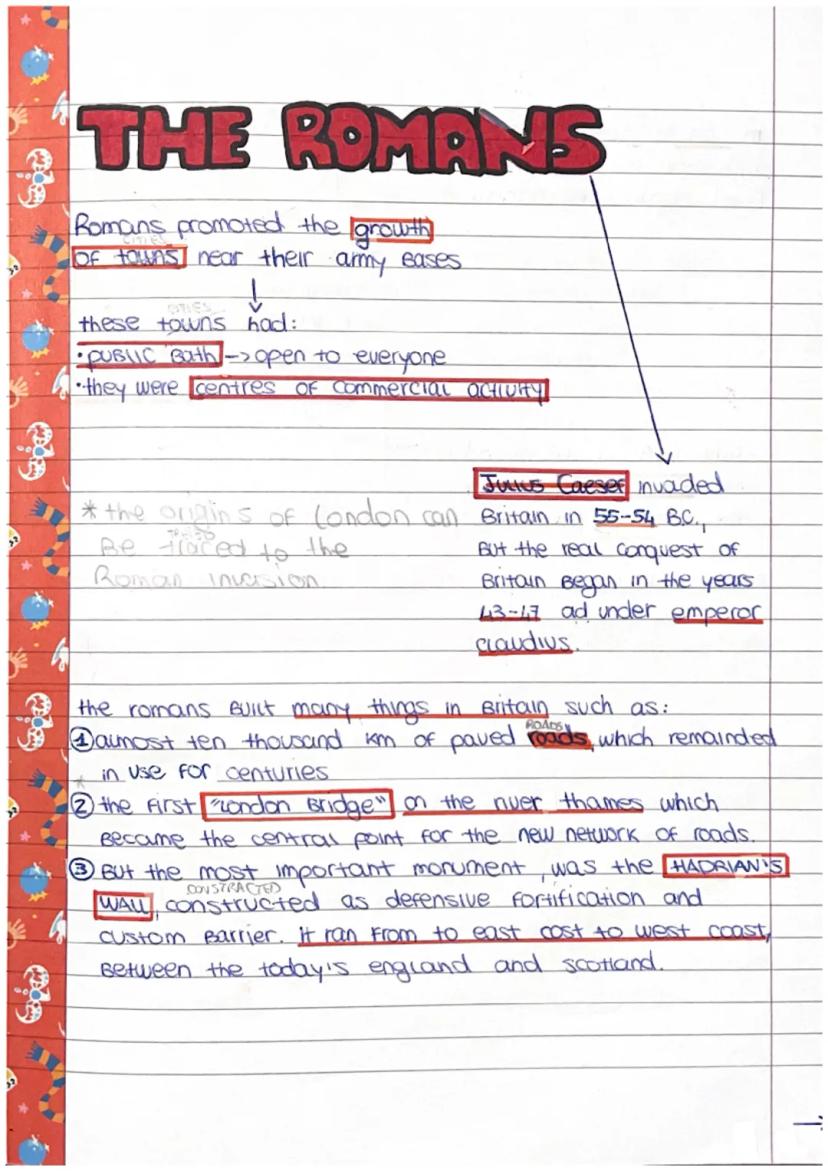 THE ROMANS
Romans promoted the growth
CITIES
of towns near their army bases
CITIES
these towns had:
• PUBLIC Bath -> open to everyone
• they were centres of commercial activity
Julius Caeser invaded
Britain in 55-54 B.C.,
But the real conquest of
Britain Began in the years
43-47 ad under emperor
claudius.
* the origins of London can
Be traced to the
Roman invasion
the romans Built many things in Britain such as:
ROADS
1 almost ten thousand km of paved roads, which remainded
in use for centuries
2 the first "London Bridge" on the river thames which
became the central point for the new network of roads.
3 But the most important monument, was the HADRIAN'S
CONSTRACTED
WALL, constructed as defensive fortification and
custom Barrier. it ran from to east cost to west coast,
Between the today's england and scotland.